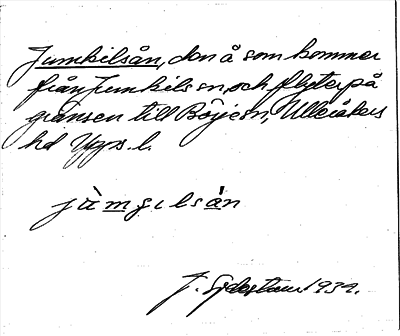 Jumkilsån, den å som kommer
från Jumkils sn, och flyter på
gränsen till Börje sn, Ulleråkers
hd Upps. l.
jùmgɩlsán
J. 1932.